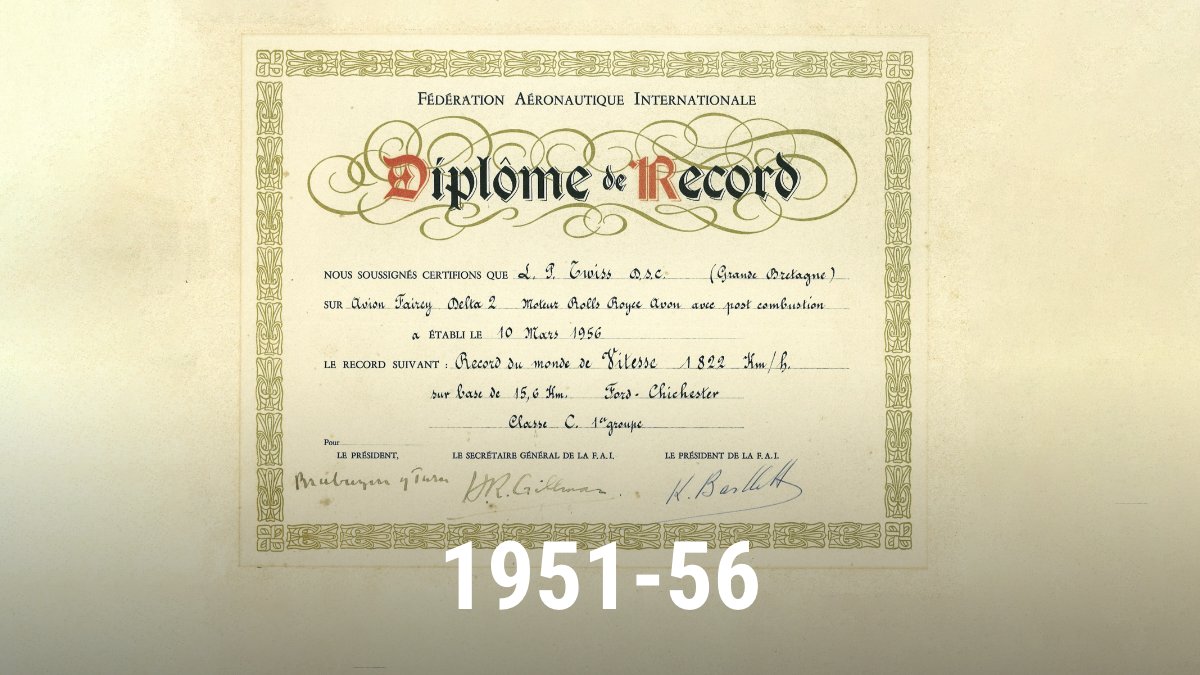 FÉDÉRATION AÉRONAUTIQUE INTERNATIONALE
Diplôme de Record
NOUS SOUSSIGNÉS CERTIFIONS QUE L. P. Twiss D.S.C. (Grande Bretagne)
SUR Avion Fairey Delta 2 Moteur Rolls Royce Avon avec post combustion
a ÉTABLI LE 10 Mars 1956
LE RECORD SUIVANT : Record du monde de Vitesse 1822 Km/h.
sur base de 15,6 Km. Ford - Chichester
Classe C. 1er groupe
Pour
LE PRÉSIDENT, LE SECRÉTAIRE GÉNÉRAL DE LA F.A.I. LE PRÉSIDENT DE LA F.A.I.
H.R. Gillman. K. Bartlett
1951-56